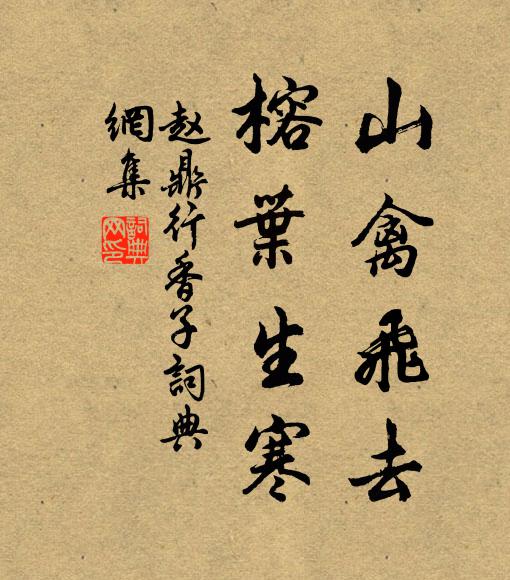 山禽飛去
榕葉生寒
赵鼎行香子詞典
網集
詞典
网印